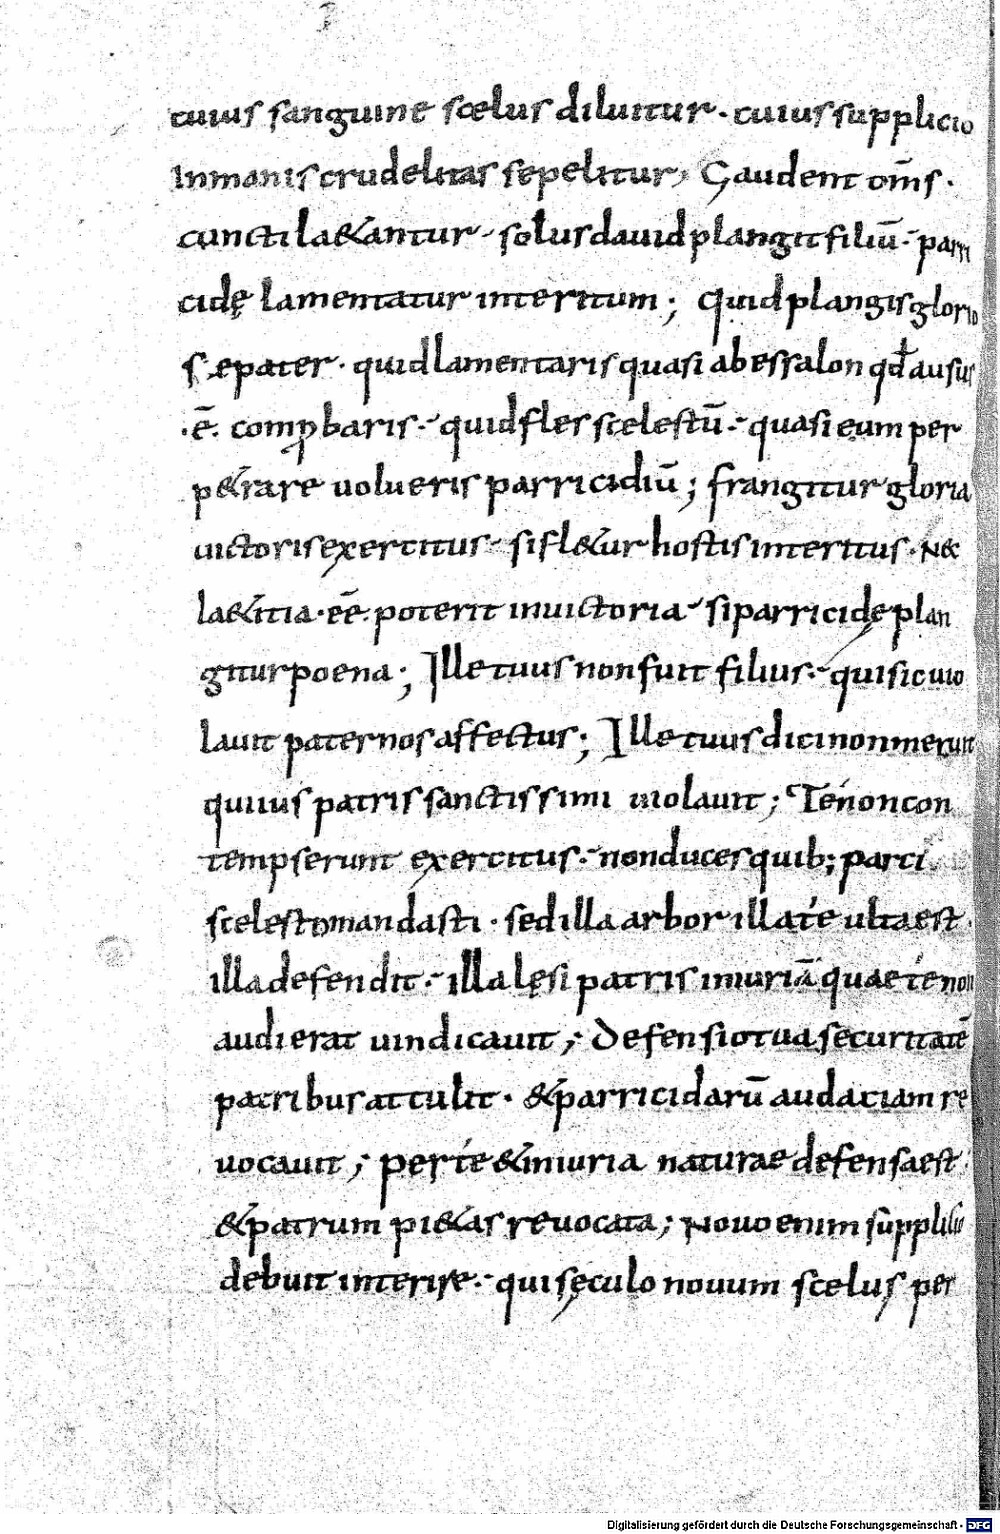 cuius sanguine scelus diluitur. cuius supplicio
Inmanis crudelitas sepelitur; Gaudent om̅s.
cuncti lae&antur. solus dauid plangit filiu̅. parri
cidę lamentatur interitum; Quid plangis glorio
sepater. quid lamentaris quasi abessalon qđ ausus
.e̅. comꝓbaris. quid fles scelestu̅. quasi eum per
p&rare uolueris parricidiu̅; frangitur gloria
uictoris exercitus. si fl&ur hostis interitus. N&
la&itia. ee̅. poterit in uictoria. si parricidę plan
gitur poena; Ille tuus non fuit filius. qui sic uio
lauit paternos affectus; Ille tuus dici non meruit
qui ius patris sanctissimi uiolauit; Té non con
tempserunt exercitus. non duces quib; parci
scelesto mandasti. sed illa arbor illa té ulta est.
illa defendit. illa lęsi patris iniuria̅ quae té non
audierat uindicauit; Defensio tua securitate̅
patribus attulit. & parricidaru̅ audaciam re
uocauit; per té & iniuria naturae defensa est
& patrum pi&as reuocata; Nouo enim supplicio
debuit interire. qui sęculo nouum scelus per